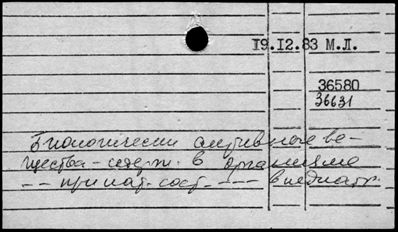 19.12.83 М.Л.
36580
36631
Биологически активные ве-
щества - содерж. в организме
-- при пат. сост. -- -- в педиатр.